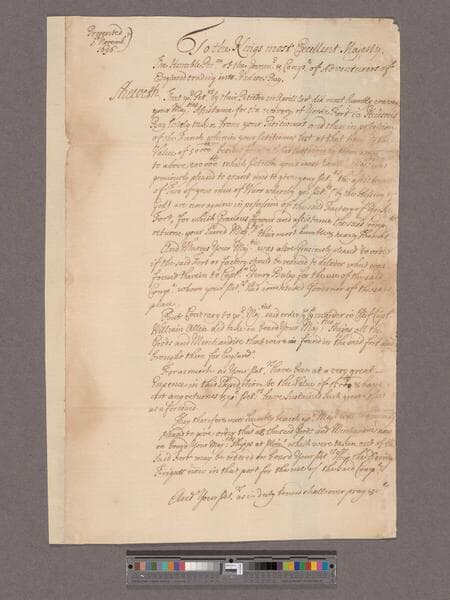 Presented
1 Novemb
1696
To the Kings most Excellent Majesty
The Humble Pet:on of the Govern:r & Comp:a of Adventurers of
England trading into Hudsons Bay.
Sheweth
That yo:r Pet:rs by their Petition in Aprill last did most humbly crave
your Maj:ties Assistance for the recovery of Yorke Fort in Hudsons
Bay lately taken from your Petitioners and then in possession
of the French wherein your Petitioners lost at that time to the
Value of
to above which Petition your most
graciously pleased to grant and to give your Pet:rs the assistance
of Two of your men of Warr whereby yo:r Pet:rs by the blessing of
God are now againe in possession of the said Factory of Yorke
Fort, for which Gracious favour and assistance the said Comp:a
returne your Sacred Maj:ty their most humble & hearty Thanks
And Whereas Your Maj:tie was also Graciously pleased to order
if the said Fort or Factory should be reduced to deliver what was
found therein to Capt:n Henry Baley for the use of the said
Comp:a whom your Pet:rs had constituted Governor of the same
place.
But Contrary to yo:r Ma:ties said order y:e Comander in Cheif Capt
William Allen did take on board Your Maj:ties Shipps all the
Goods and Merchandize that were in found in the said fort and
brought them for England.
Forasmuch as Your Pet:rs have been at a very great
Expence in this Expedition to the Value of & have
not any returns & yo:r Pet:rs have sustained such great losses
as aforesaid
May therefore most humbly beseech yo:r Maj:ty
pleased to give order that all the said Goods and Merchandize now
on board Your Maj:ties Shipps at which were taken out of the
said Fort may be ordered on board Your Pet:rs Ship the
Friggatt now in that port for the use of the said Comp:a
And Your Pet:rs as in duty bound shall ever pray &c